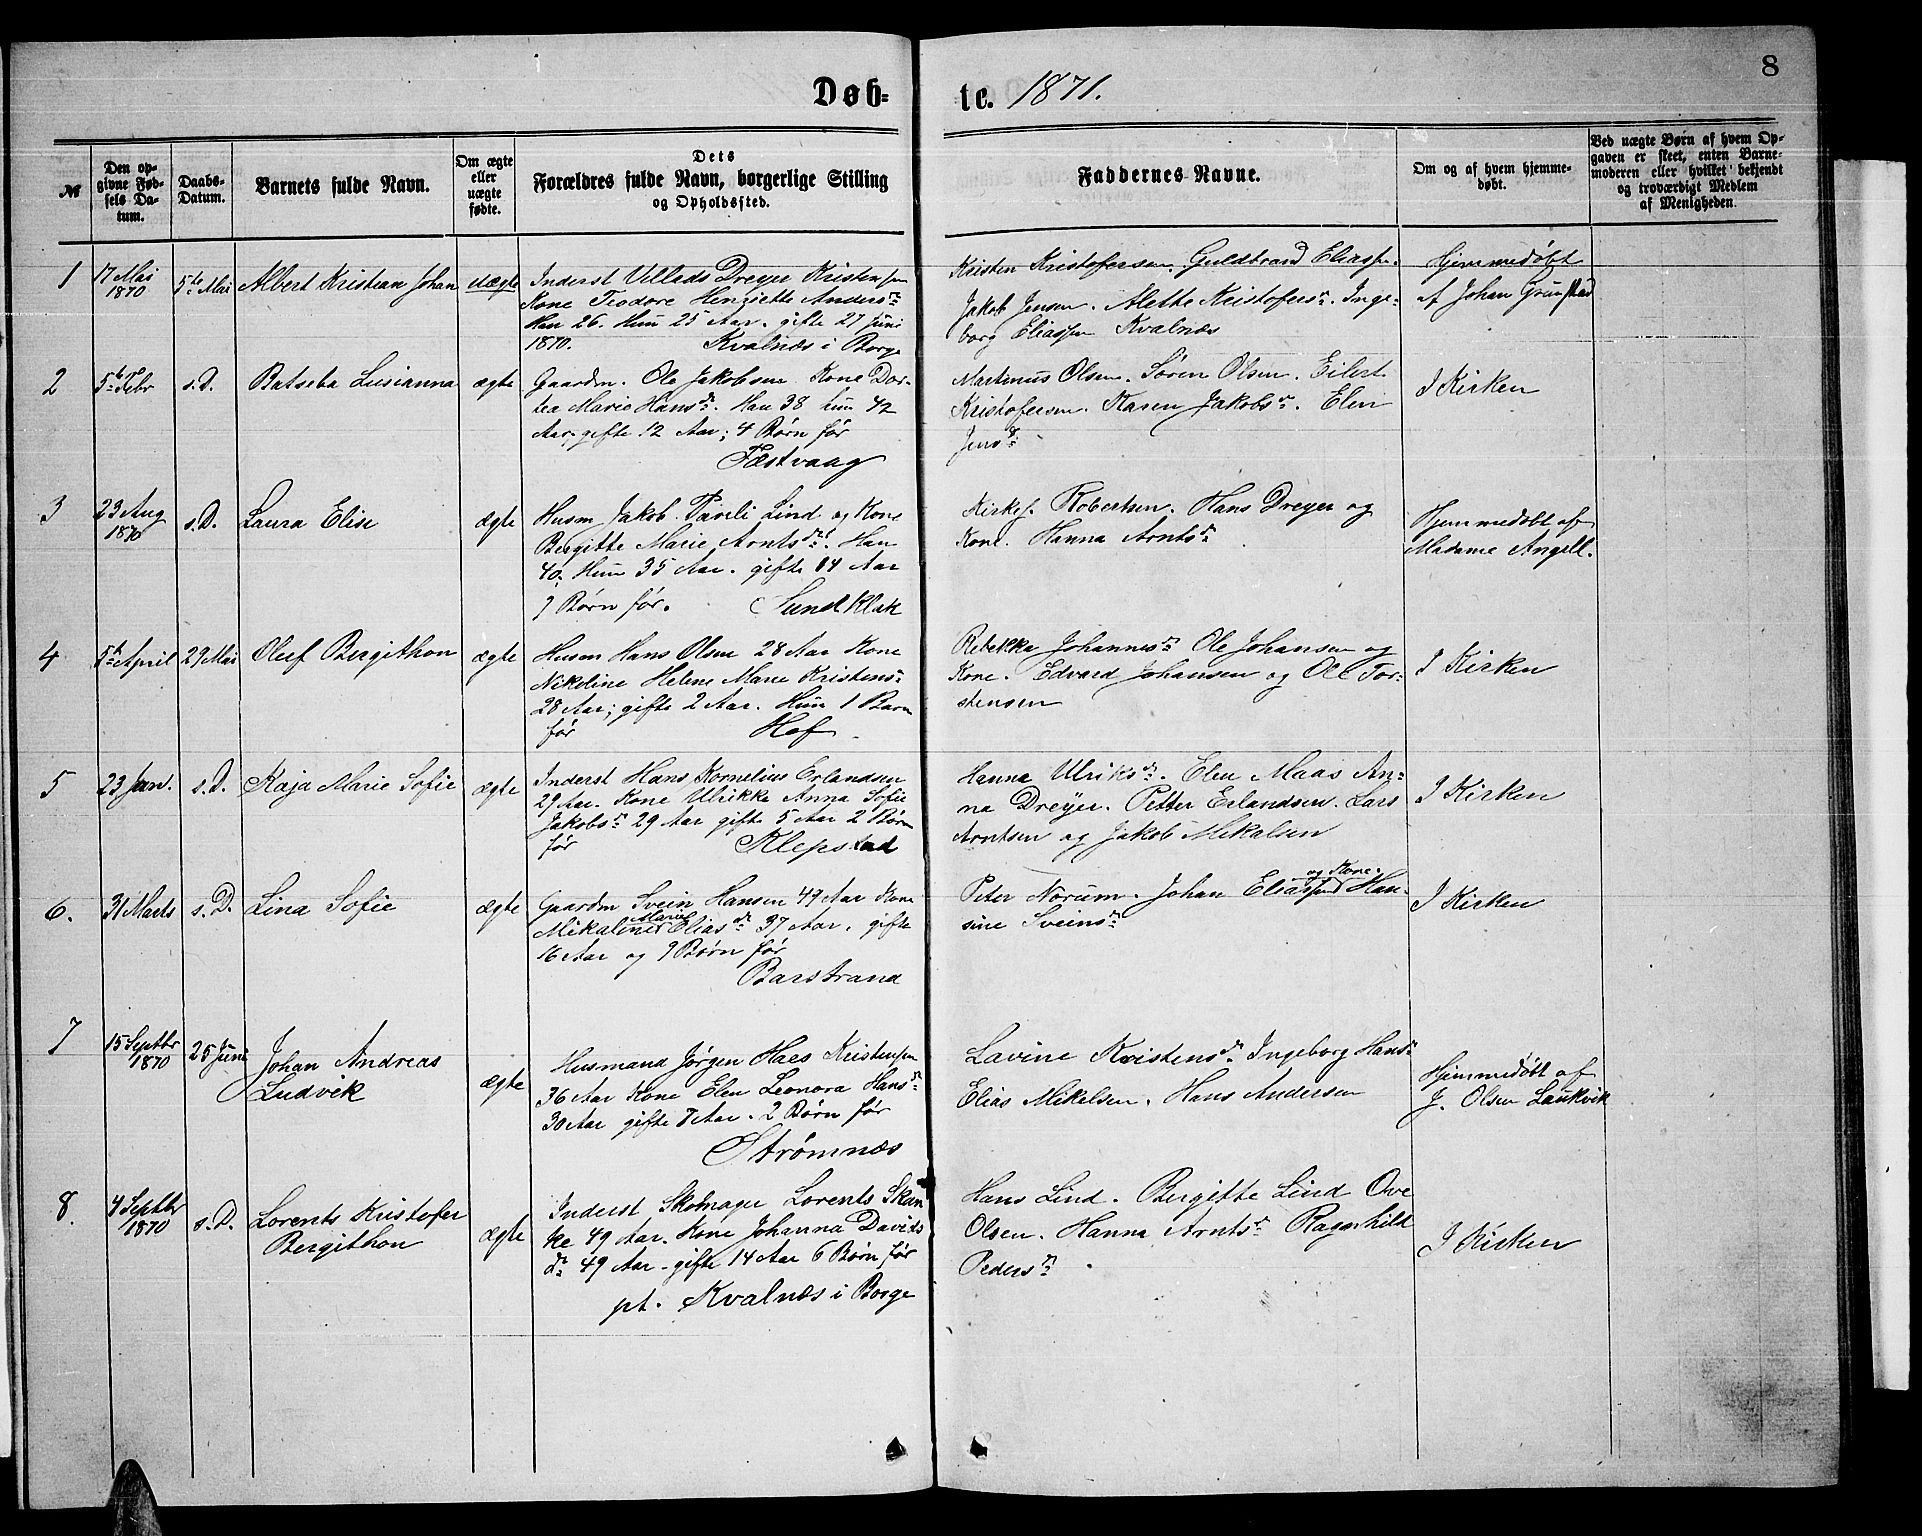 8
Døb- te. 1871.
№
Den op-
givne Fød-
sels Da-
tum.
Daabs-
Datum.
Barnets fulde Navn.
Om ægte
eller
uægte
fødte.
Dets
Forældres fulde Navn, borgerlige Stilling
og Opholdssted.
Faddernes Navne.
Om og af hvem hjemme-
døbt.
Ved uægte Børn af hvem Op-
gaven er skeet, enten Barne-
moderen eller hvilket bekjendt
og troværdigt Medlem
af Menigheden.
1
17 Mai
1870
5te Mai
Albert Kristian Johan
uægte
Inderst Villads Dreyer Kristensen
Kone Teodore Henriette Andersdr
Han 26. Hun 25 Aar. gifte 27 Juni
1870. Kvalnæs i Borge
Kristen Kristofersen. Guldbrand Eliassen.
Jakob Jensen. Alette Kristofersdr. Inge-
borg Eliassen Kvalnæs
Hjemmedøbt
af Johan Grimstad
2
5te Febr
s.D.
Batseba Lusianna
ægte
Gaardm. Ole Jakobsen Kone Dor-
tea Marie Hansdr. Han 38 hun 42
Aar, gifte 12 Aar; 4 Børn før
Festvaag
Martinus Olsen. Søren Olsen. Eilert
Kristofersen. Karen Jakobsdr. Elen
Jensdr.
I Kirken
3
23 Aug
1870
s.D.
Laura Elise
ægte
Husm Jakob Paveli Lind og Kone
Bergitte Marie Arntsdr. Han
40. Hun 35 Aar. gifte 14 Aar
9 Børn før. Sundklak
Kirkes. Robertsen. Hans Dreyer og
Kone. Hanna Arntsdr
Hjemmedøbt af
Madame Angell.
4
5te April
29 Mai
Oluf Bergithon
ægte
Husm Hans Olsen 28 Aar Kone
Nikoline Helene Marie Kristensdr
28 Aar; gifte 2 Aar. Hun 1 Barn
før Hof
Rebekka Johannesdr Ole Johansen og
Kone. Edvard Johansen og Ole Tor-
stensen
I Kirken
5
23 Jan.
s.D.
Kaja Marie Sofie
ægte
Inderst Hans Kornelius Erlandsen
29 Aar. Kone Ulrikke Anna Sofie
Jakobsdr 29 Aar gifte 5 Aar 2 Børn
før Klepstad
Hanna Ulriksdr. Elen Maas An-
na Dreyer. Petter Erlandsen. Lars
Arntsen og Jakob Mikalsen
I Kirken
6.
31 Marts
s.D.
Lina Sofie
ægte
Gaardm Svein Hansen 47 Aar Kone
Mikaline Marie Eliasdr 37 Aar. gifte
16 Aar og 9 Børn før
Barstrand
Peter Norum. Johan Eliassen og Kone. Han-
sine Sveinsdr
I Kirken
7
15 Septbr
1870
25 Juni
Johan Andreas
Ludvik
ægte
Husmand Jørgen Haes Kristensen
36 Aar Kone Elen Leonora Hansdr
30 Aar gifte 8 Aar. 2 Børn før
Strømnæs
Lavine Kristensdr Ingeborg Hansdr
Elias Mikelsen. Hans Andersen
Hjemmedøbt af
J. Olsen Laukvik
8.
4 Septbr
1870
s.D.
Lorents Kristofer
Bergithon
ægte
Inderst Skomager Lorents Skan
ke 49 Aar. Kone Johanna Davids
dr 49 Aar - gifte 14 Aar 6 Børn før
pt. Kvalnæs i Borge
Hans Lind. Bergitte Lind Ove
Olsen. Hanna Arntsdr Ragnhild
Pedersdr.
I Kirken